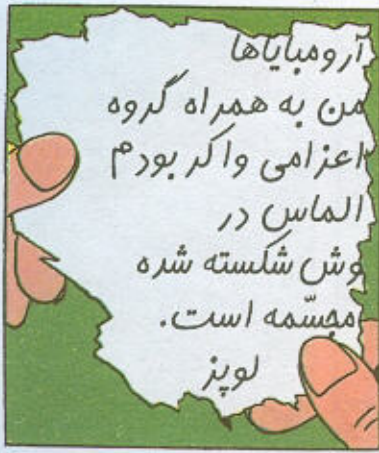 آرومبایاها
من به همراه گروه
اعزامی واکر بودم
الماس در
وش شکسته شده
مجسّمه است.
لوپز